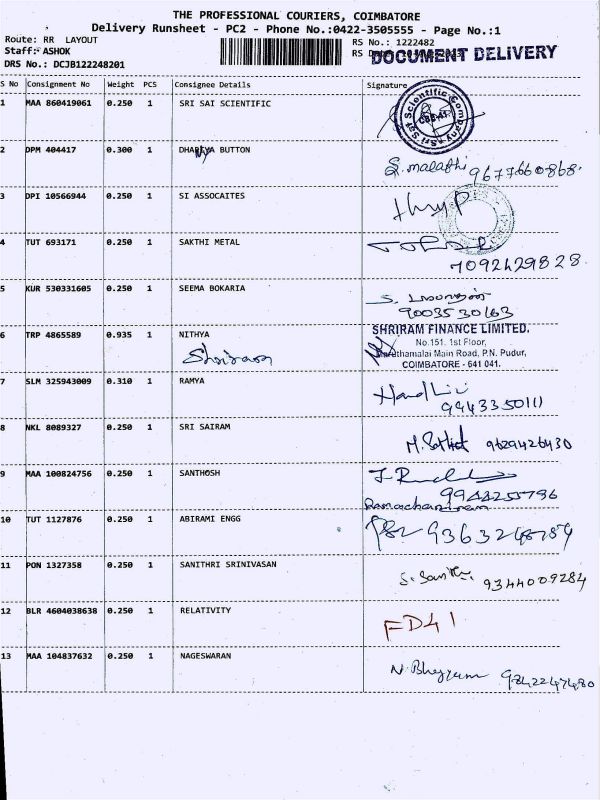 THE PROFESSIONAL COURIERS, COIMBATORE
Delivery Runsheet - PC2 - Phone No.:0422-3505555 - Page No.:1
Route: RR LAYOUT
RS No.: 1222482
Staff: ASHOK
RS
DOCUMENT DELIVERY
DRS No.: DCJB122248201
S No Consignment No Weight PCS Consignee Details Signature
1 MAA 860419061 0.250 1 SRI SAI SCIENTIFIC
Sri Sai Scientific Company
CBE-41
2 DPM 404417 0.300 1 BUTTON
S. malathi 9677660868.
3 DPI 10566944 0.250 1 SI ASSOCAITES
4 TUT 693171 0.250 1 SAKTHI METAL
7092429828
5 KUR 530331605 0.250 1 SEEMA BOKARIA
9003530163
6 TRP 4865589 0.935 1 NITHYA
Shriram
SHRIRAM FINANCE LIMITED.
No.151. 1st Floor,
Maruthamalai Main Road, P.N. Pudur,
COIMBATORE - 641 041.
7 SLM 325943009 0.310 1 RAMYA
9943350111
8 NKL 8089327 0.250 1 SRI SAIRAM
9629426430
9 MAA 100824756 0.250 1 SANTHOSH
9943255796
10 TUT 1127876 0.250 1 ABIRAMI ENGG
11 PON 1327358 0.250 1 SANITHRI SRINIVASAN
9344009284
12 BLR 4604038638 0.250 1 RELATIVITY
FD41
13 MAA 104837632 0.250 1 NAGESWARAN
9842247480